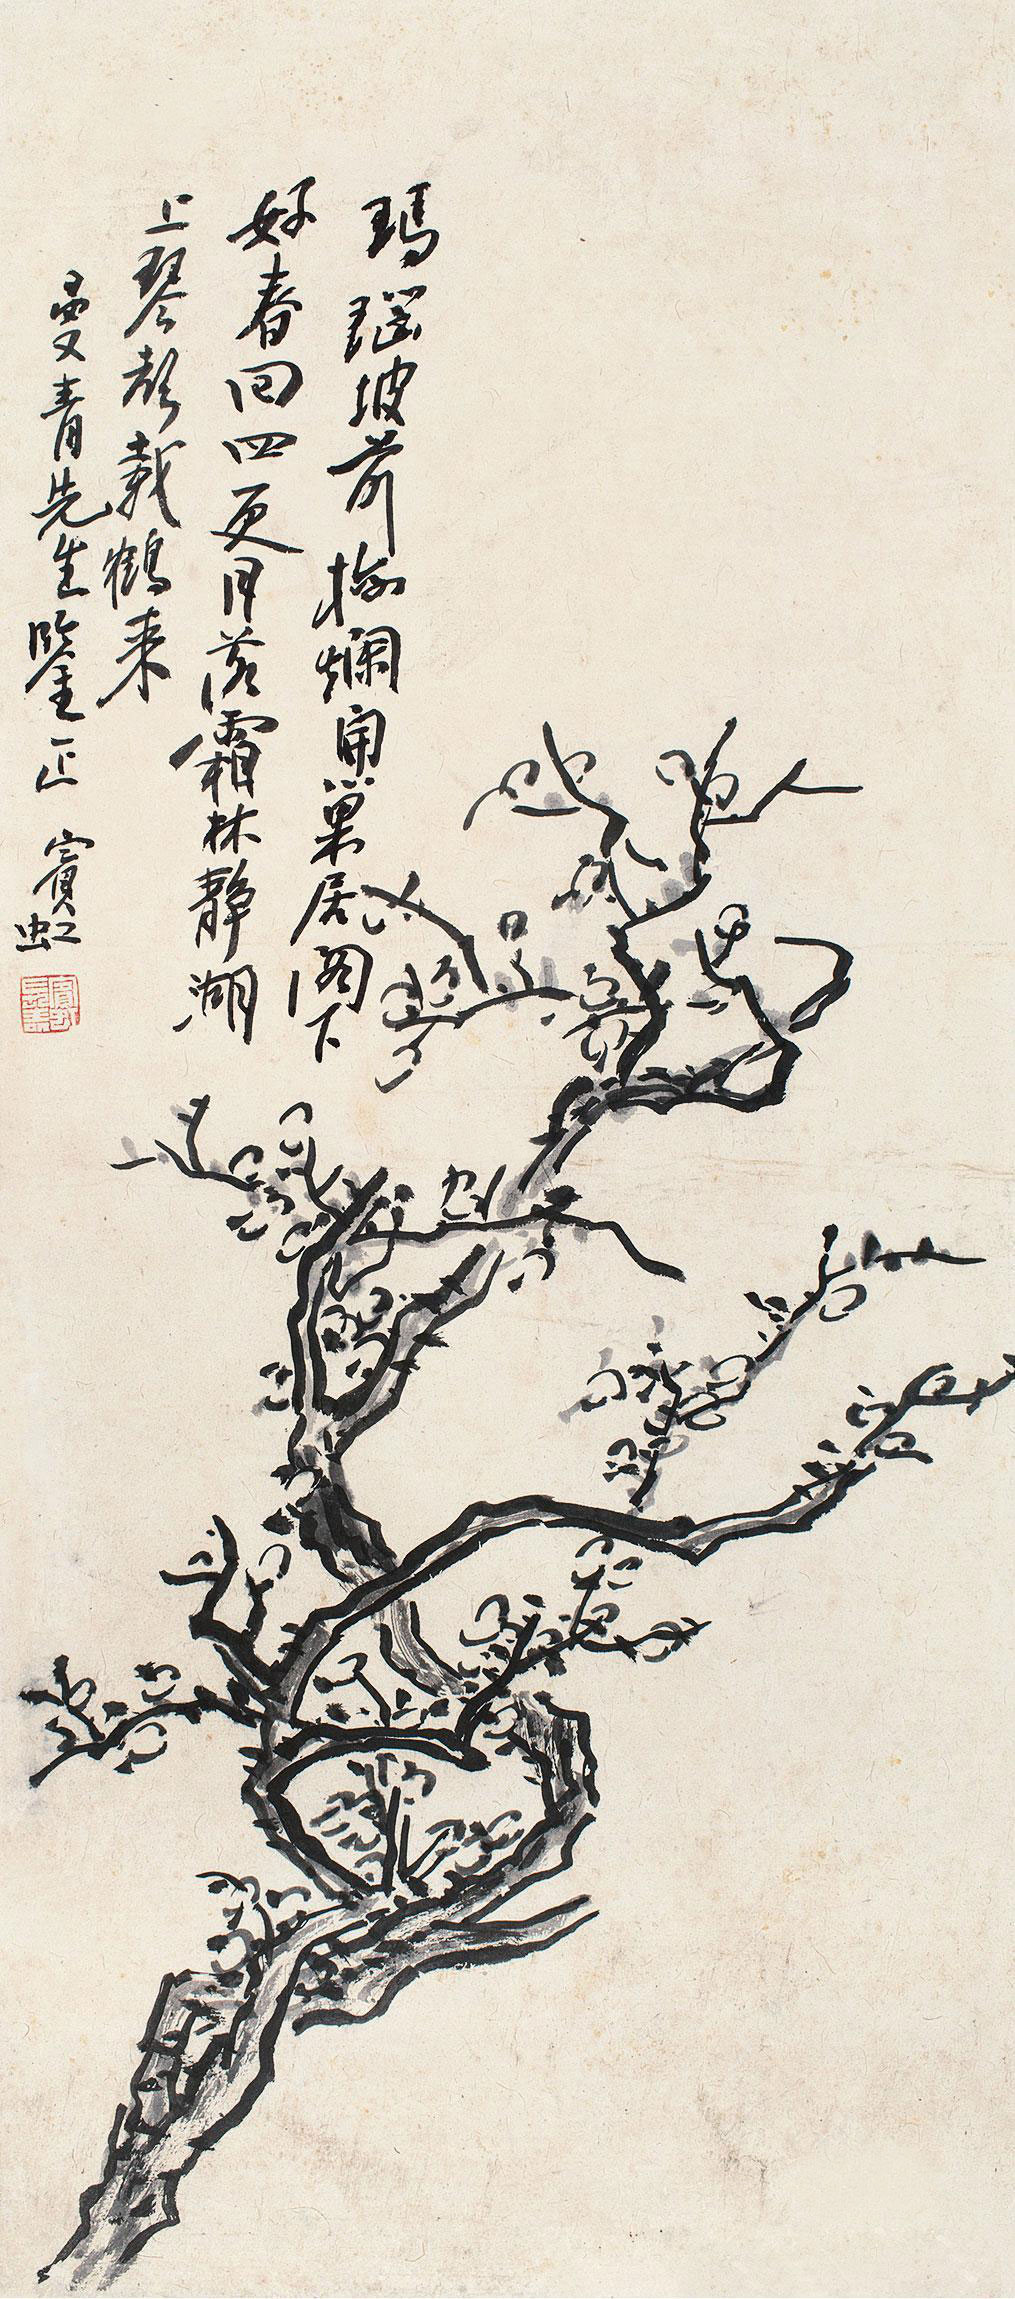 玛瑙坡前梅烂開巢居阁下
好春回四更月落霜林静湖
上琴聲載鶴来
曼青先生鑒正 賓虹